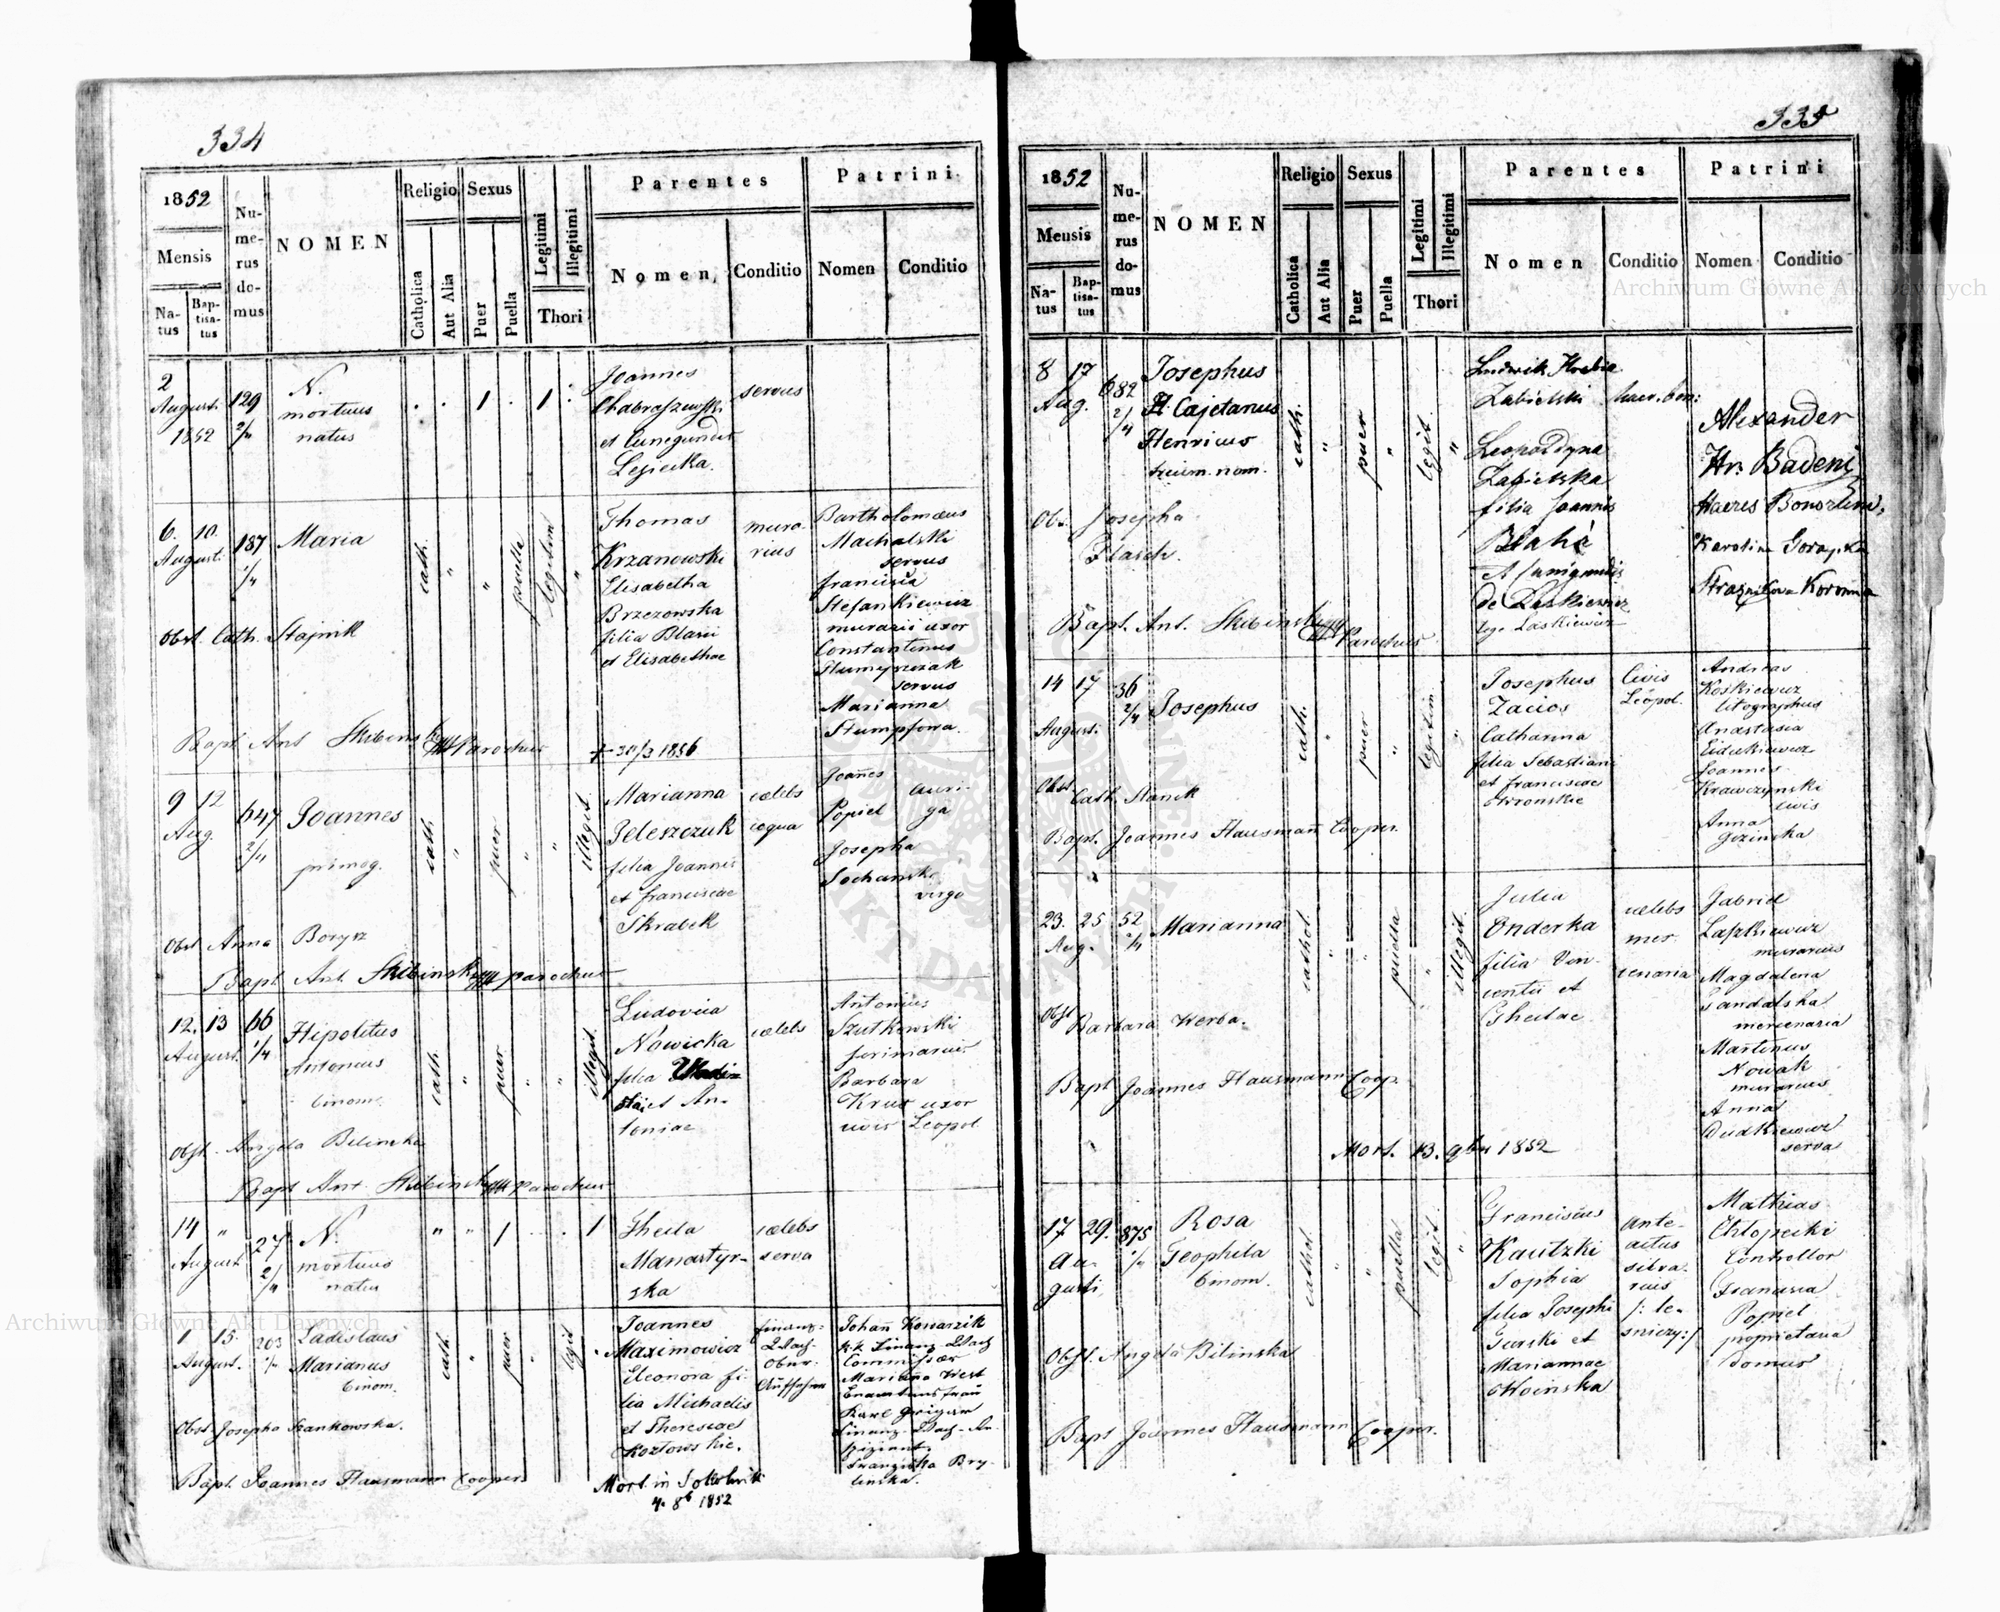 334
1852
Mensis
Na-
tus
Bap-
tisa-
tus
Nu-
me-
rus
do-
mus
NOMEN
Religio
Catholica
Aut Alia
Sexus
Puer
Puella
Legitimi
Illegitimi
Thori
Parentes
Nomen
Conditio
Patrini
Nomen
Conditio
2
August.
1852
129
2/4
N.
mortuus
natus
1
1
Joannes
et Cunegundis
servus
6. 10.
August.
187
1/4
Maria
cath.
puella
legitim
Thomas
Krzanowski
Elisabetha
Brzezowska
filia Blasii
et Elisabethae
mura-
rius
Bartholomaeus
Machalski
servus
Francisca
Stefankiewicz
murarii uxor
Constantinus
servus
Marianna
Stumpfowa.
Obst. Cath. Stajnik
Bapt. Ant. Skibinski Parochus
+ 30/3 1856
9 12
Aug.
647
2/4
Joannes
primog.
cath.
puer
illegit.
Marianna
Peleszczuk
filia Joannis
et Franciscae
Skrabek
caelebs
coqua
Joannes
Popiel
auri-
ga
Josepha
Sochanska
virgo
Obst Anna Borysz
Bapt Ant. Skibinski parochus
12. 13
August.
66
1/4
Hipolitus
Antonius
binom.
cath.
puer
illegit.
Ludovica
Nowicka
filia Wladi-
slai et An-
toniae
caelebs
Antonius
Szutkowski
Barbara
Krus uxor
civis Leopol.
Obst. Angela Bilinska
Bapt Ant. Skibinski parochus
14 "
August
27
2/4
N.
mortuus
natus
1
1
Thecla
Manastyr-
ska
caelebs
serva
1 15
August.
203
1/4
Ladislaus
Marianus
binom.
cath.
puer
legit
Joannes
Maximowicz
Eleonora fi-
lia Michaelis
et Theresiae
Kozlowskie.
Finanz-
Wach-
Ober-
Aufseher
Johan Konarzik
kk. Finanz-Wach
Commissär
Marianna West
Beamtensfrau
Karl Grigar
Finanz-Wach-
Franziska Bry-
linska.
Obst Josepha Jankowska.
Bapt. Joannes Hausmann Cooper.
4. 8b 1852
335
1852
Mensis
Na-
tus
Bap-
tisa-
tus
Nu-
me-
rus
do-
mus
NOMEN
Religio
Catholica
Aut Alia
Sexus
Puer
Puella
Legitimi
Illegitimi
Thori
Parentes
Nomen
Conditio
Patrini
Nomen
Conditio
8 17
Aug.
682
2/4
Josephus
Cajetanus
Henricus
trium nom.
cath.
puer
legit.
Ludwik Hrabia
Zabielski
haer. bon:
Leopoldyna
Zabielska
filia Joannis
Blaha
et Cunigundis
de Laskiewicz
lege Laskiewicz
Alexander
Hr. Badeni
Haeres Bonorum
Karolina
Strażnikowa Koronna
Ob. Josepha
Bapt. Ant. Skibinski Parochus
14 17
August.
36
2/4
Josephus
cath.
puer
legitim
Josephus
Zacios
Catharina
filia Sebastiani
et Franciscae
Civis
Leopol.
Andreas
Koskiewicz
litographus
Anastasia
Joannes
Krawczynski
civis
Anna
Gozinska
Obst. Cath. Slanik
Bapt. Joannes Hausmann Cooper.
23. 25
Aug.
52
2/4
Marianna
cathol.
puella
illegit.
Julia
Onderka
filia Vin-
centii et
Theclae
caelebs
mer-
cenaria
Gabriel
Laszkiewicz
murarius
Magdalena
Gandalska
mercenaria
Martinus
Nowak
murarius
Anna
Dudkiewicz
serva
Obst Barbara Werba.
Bapt Joannes Hausmann Coop.
Mort. 13. 9br 1852
17 29.
Au-
gusti
875
1/4
Rosa
Teophila
binom.
cathol.
puella
legit.
Franciscus
Kautzki
Sophia
filia Josephi
Gurski et
Mariannae
Woinska
ante-
actus
silva-
rius
/: le-
sniczy:/
Mathias
Chlopecki
Controllor
Granaria
Popiel
proprietaria
domus
Obst. Angela Bilinska
Bapt Joannes Hausmann Cooper.
Archiwum Główne Akt Dawnych
Archiwum Główne Akt Dawnych